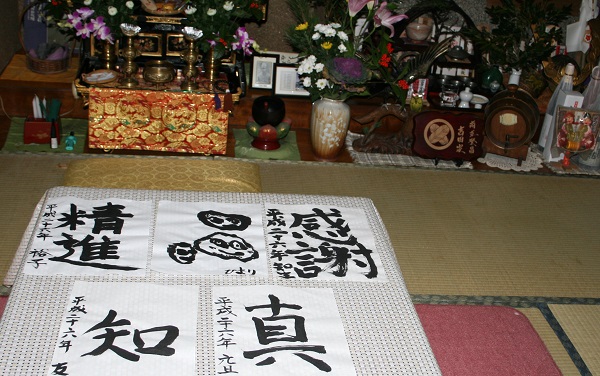 精進
平成二十六年 裕子
ひより
感謝
平成二十六年
知
平成二十六年 友
真
平成二十六年 元旦